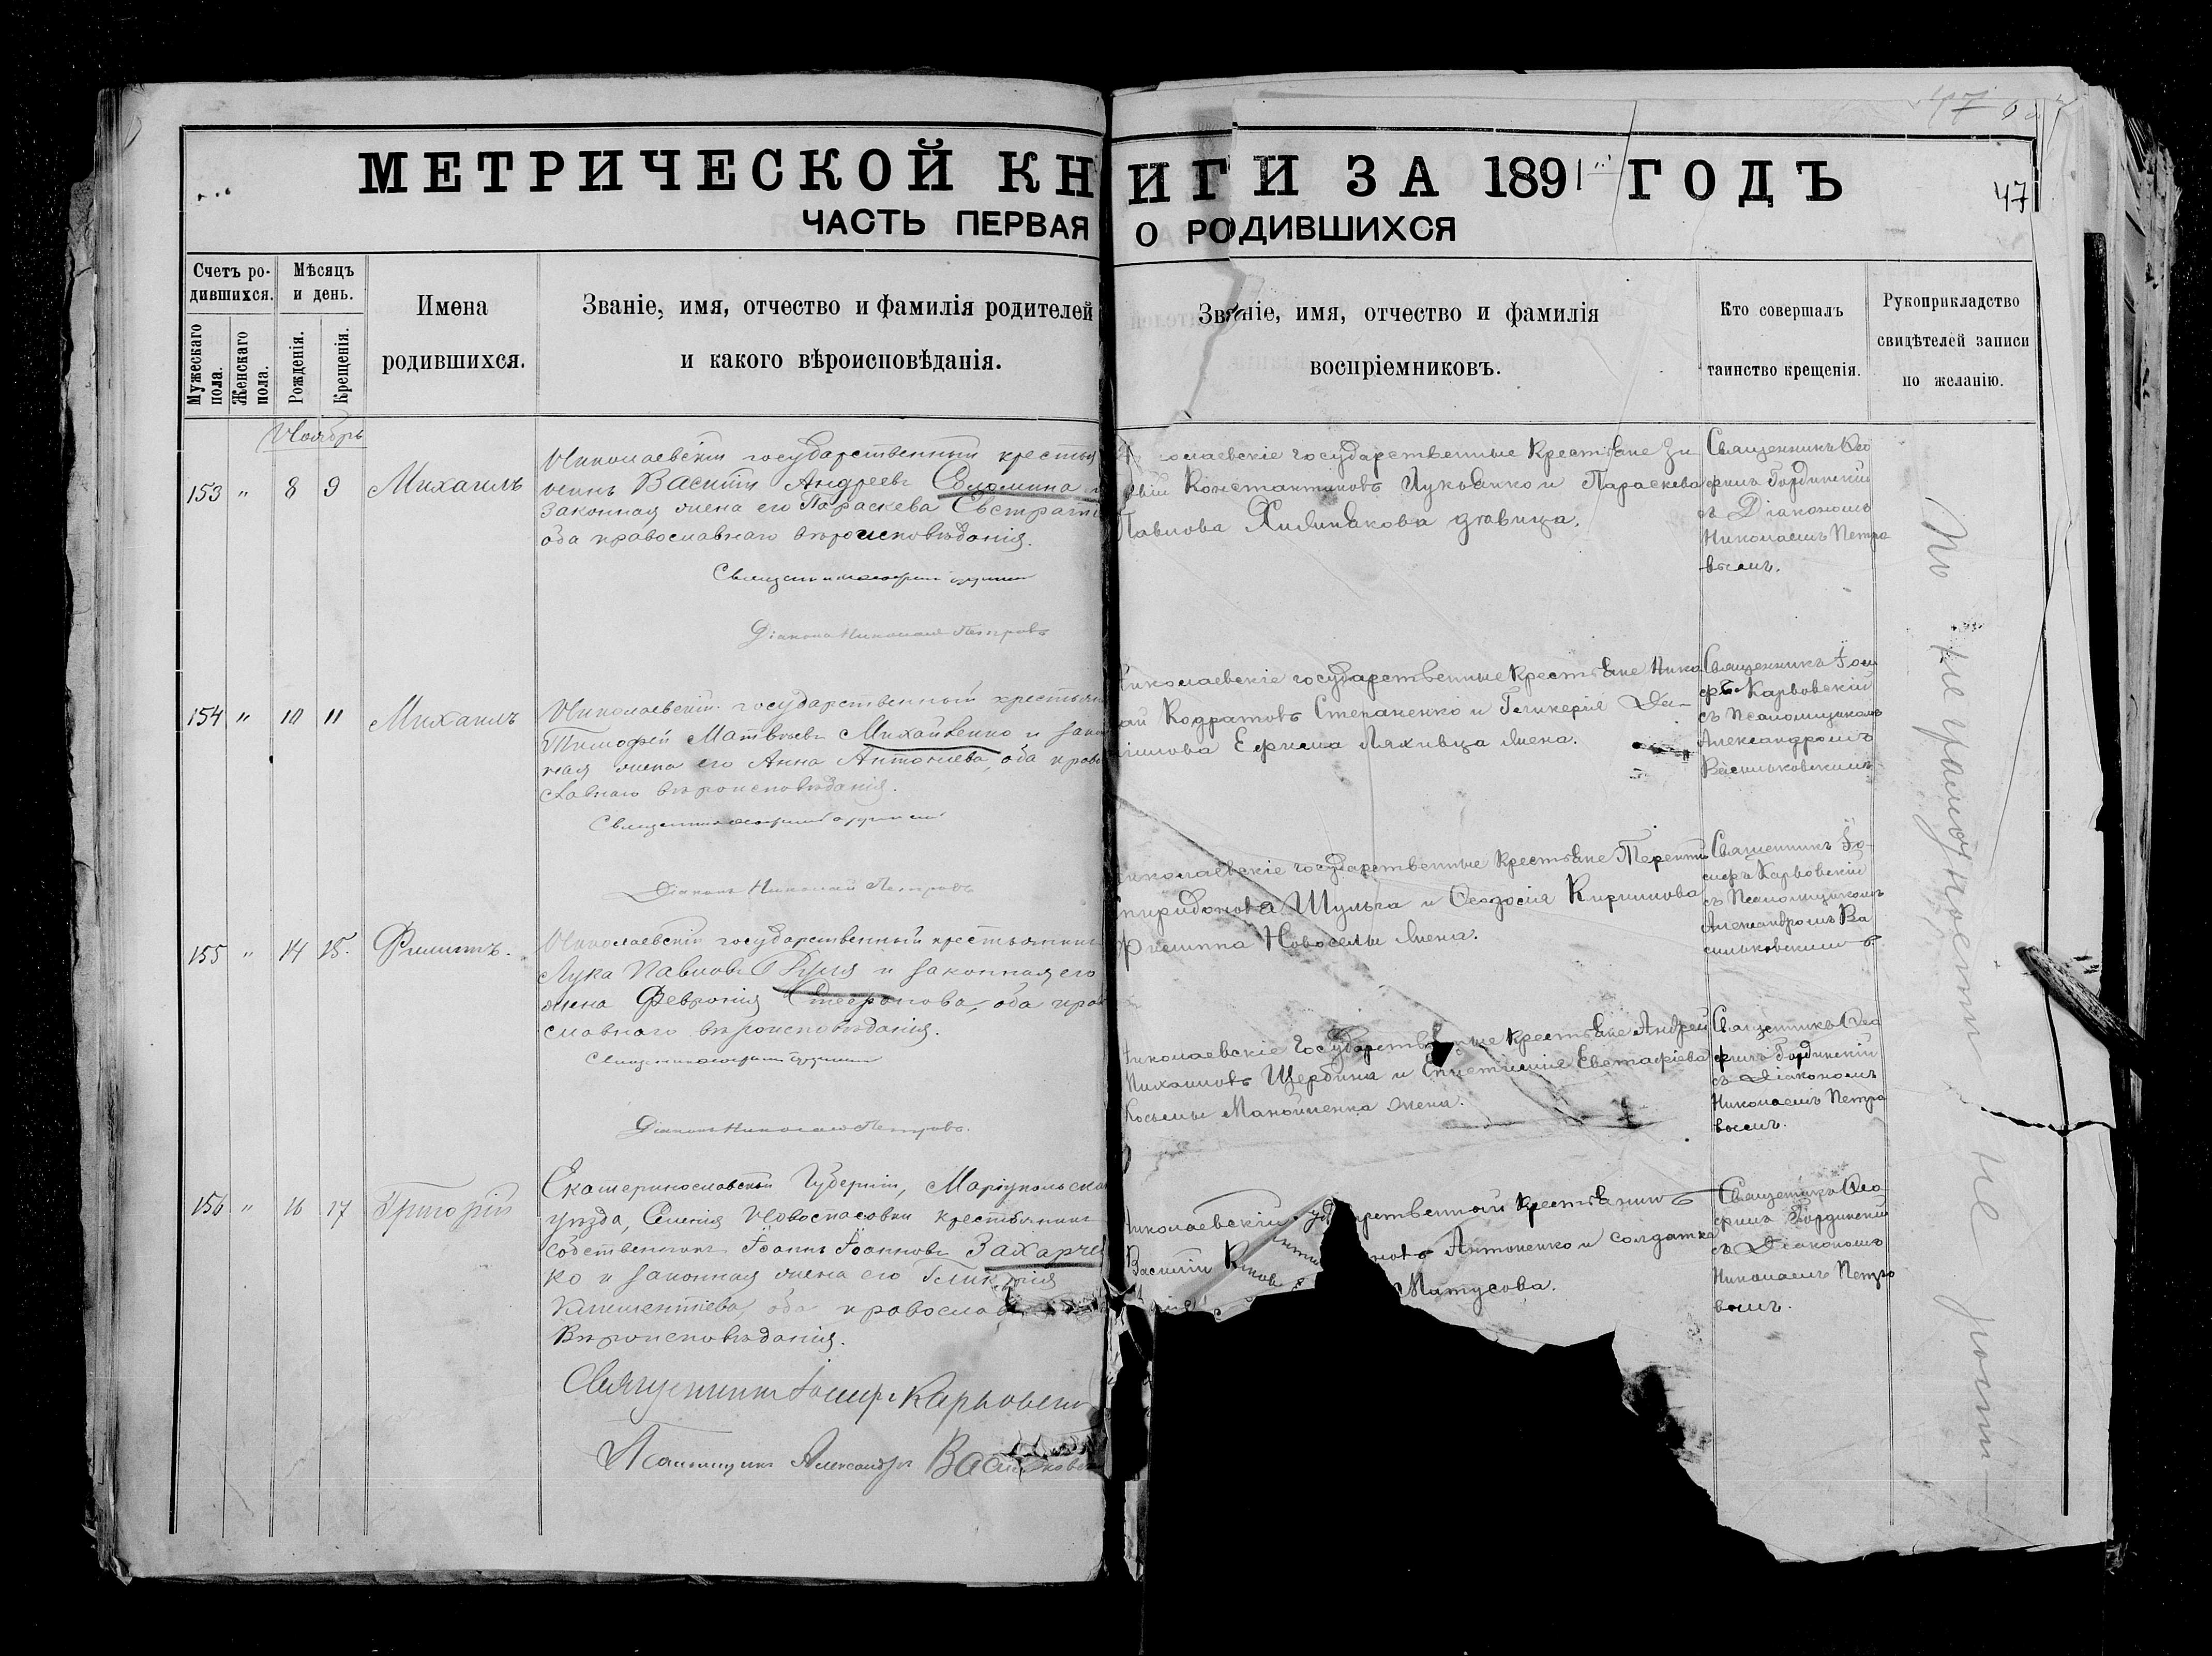 47
МЕТРИЧЕСКОЙ КНИГИ ЗА 1891 ГОДЪ
47
ЧАСТЬ ПЕРВАЯ О РОДИВШИХСЯ
Счетъ ро-
дившихся.
Мужескаго
пола.
Женскаго
пола.
Мѣсяцъ
и день.
Рожденія.
Крещенія.
Имена
родившихся.
Званіе, имя, отчество и фамилія родителей
и какого вѣроисповѣданія.
Званіе, имя, отчество и фамилія
воспріемниковъ.
Кто совершалъ
таинство крещенія.
Рукоприкладство
свидѣтелей записи
по желанію.
Ноябрь
153 " 8 9 Михаилъ
Николаевскій государственный крестья
Василій Андреевъ
законная жена его Параскева Евстрати
оба православнаго вѣроисповѣданія.
Діаконъ Николай Петровъ
государственные крестьяне
Константиновъ Луковенко и Параскева
Павлова девица.
Священникъ Ѳео
филъ Гординскій
съ Діакономъ
Николаемъ Петро
вымъ.
154 " 10 11 Михаилъ
Николаевскій государственный крестьяни
Тимофей Матвѣевъ Михайленко и закон
ная жена его Анна Антоніева, оба право
славнаго вѣроисповѣданія.
Діаконъ Николай Петровъ
николаевскіе государственные крестьяне Нико
лай Кодратовъ Степаненко и Гликерія Да-
Ефима Ляхивца жена.
Священникъ Іоси
фъ Карвовскій
съ Псаломщикомъ
Александромъ
Васильковскимъ
155 " 14 15. Филиппъ.
Николаевскій государственный крестьянинъ
Лука Павловъ и законная его
жена Февронія Стефанова, оба право
славнаго вѣроисповѣданія.
Діаконъ Николай Петровъ.
николаевскіе государственные крестьяне Терентій
Спиридоновъ Шульга и Ѳеодосія Кириллова
Филиппа Новоселы жена.
Священникъ Іо-
сифъ Карвовскій
съ Псаломщикомъ
Александромъ Ва
сильковскимъ
николаевскіе Государственные крестьяне Андрей
Михаиловъ Щербина и Епистимія Евстафіева
Косьмы Манойленка жена.
Священникъ Ѳео
филъ Гординскій
съ Діакономъ
Николаемъ Петро
вымъ.
156 " 16 17 Григорій
Екатеринославской Губерніи, Маріупольска
уѣзда, Селенія Новоспасовки крестьянинъ
собственникъ Іоаннъ Іоанновъ Захарчен
ко и законная жена его Гликерія
Климентіева, оба православ
Вѣроисповѣданія.
Священникъ Іосифъ Карвовскі
Псаломщикъ Александръ Васильковск
николаевскій государственный крестьянинъ
Василій Антоненко и солдатка
Митусова.
Священникъ Ѳео
филъ Гординскій
съ Діакономъ
Николаемъ Петро
вымъ.
По неграмотности не росп